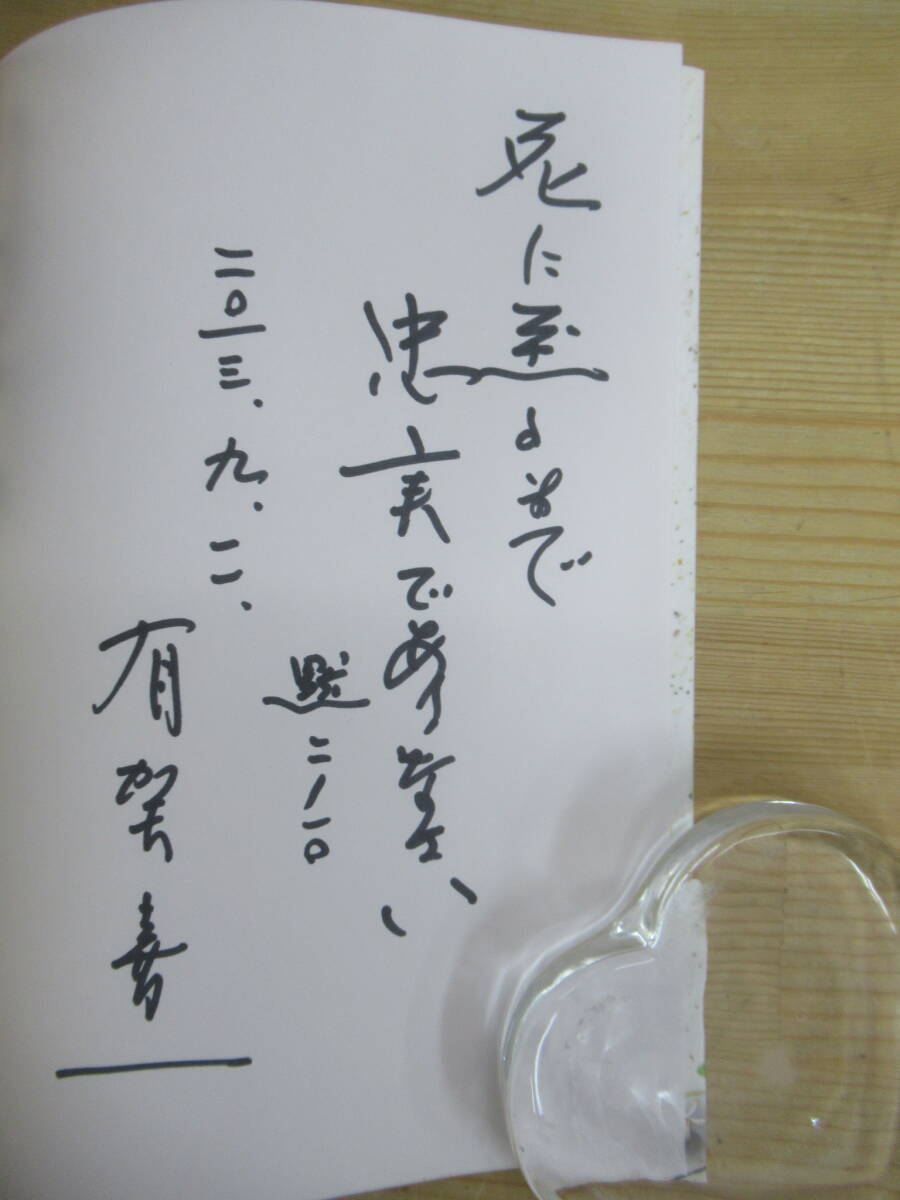 死に至るまで
忠実でありなさい
黙二ノ一〇
二〇一三、九、二、
有賀喜一